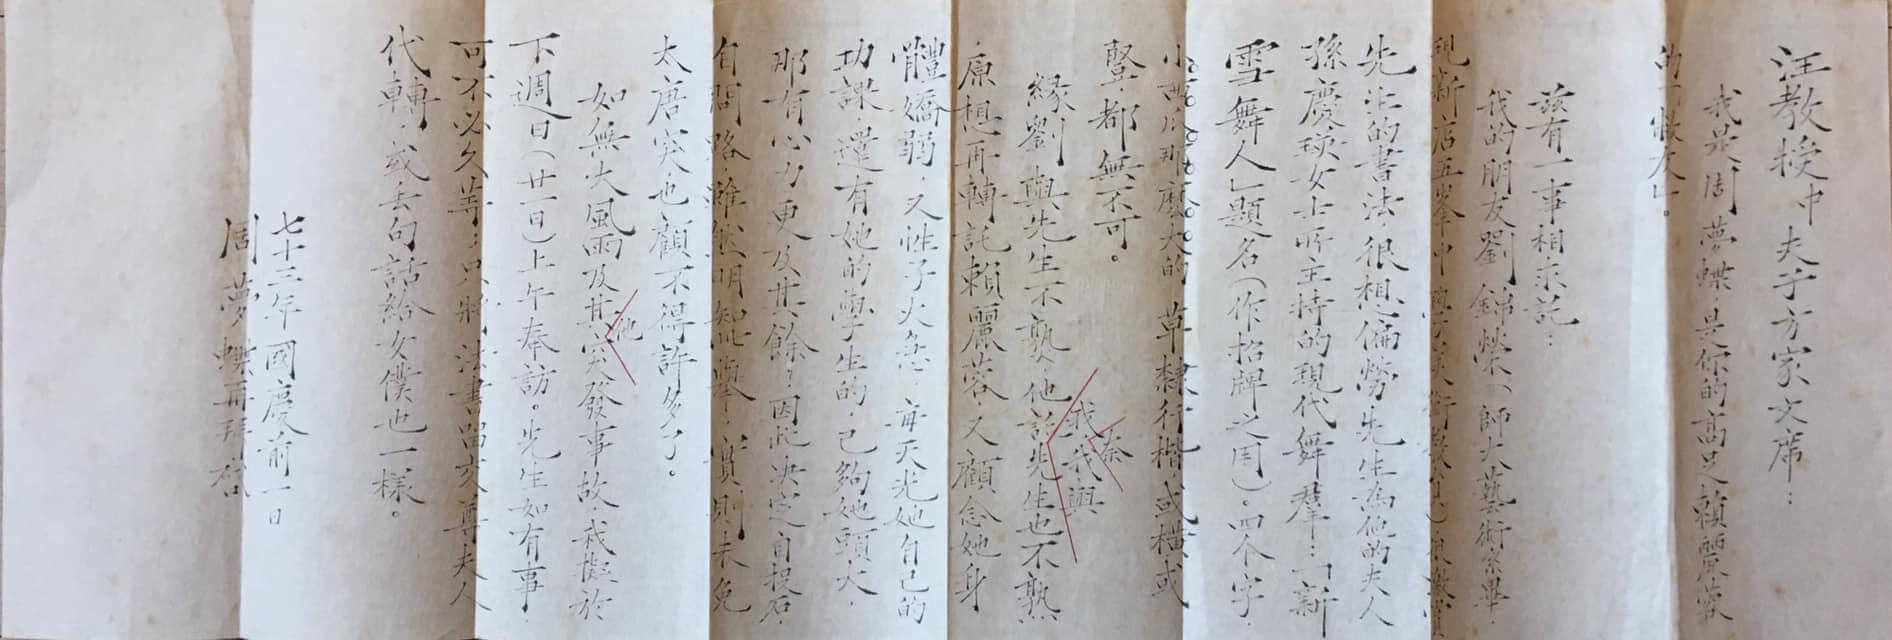 汪教授中夫子方家文席：
我是周夢蝶，是你的高足賴麗蓉
的「懷大」。
茲有一事相求託：
我的朋友劉錦榮（師大藝術系畢，
現新店五峯中學
先生的書法，很想偏勞先生為他的夫人
孫慶瑛女士所主持的現代舞羣：「新
雪舞人」題名（作招牌之用）。四个字，
那麼大的，草隸行楷，或橫或
豎，都無不可。
緣劉與先生不熟，他說先生也不熟
我我與
奈
原想再轉託賴麗蓉，又顧念她身
體嬌弱，又性子火急，每天光她自己的
功課，還有她的學生的，已夠她頭大，
那有心力更及其餘？因此決定自投石
自問路，雖然明知此舉，實則未免
太唐突也顧不得許多了。
如無大風雨及其突發事故，我擬於
他
下週日（廿一日）上午奉訪。先生如有事，
可不必久等；只將法書留交尊夫人
代轉，或丟句話給女僕也一樣。
七十三年國慶前一日
周夢蝶再拜啟